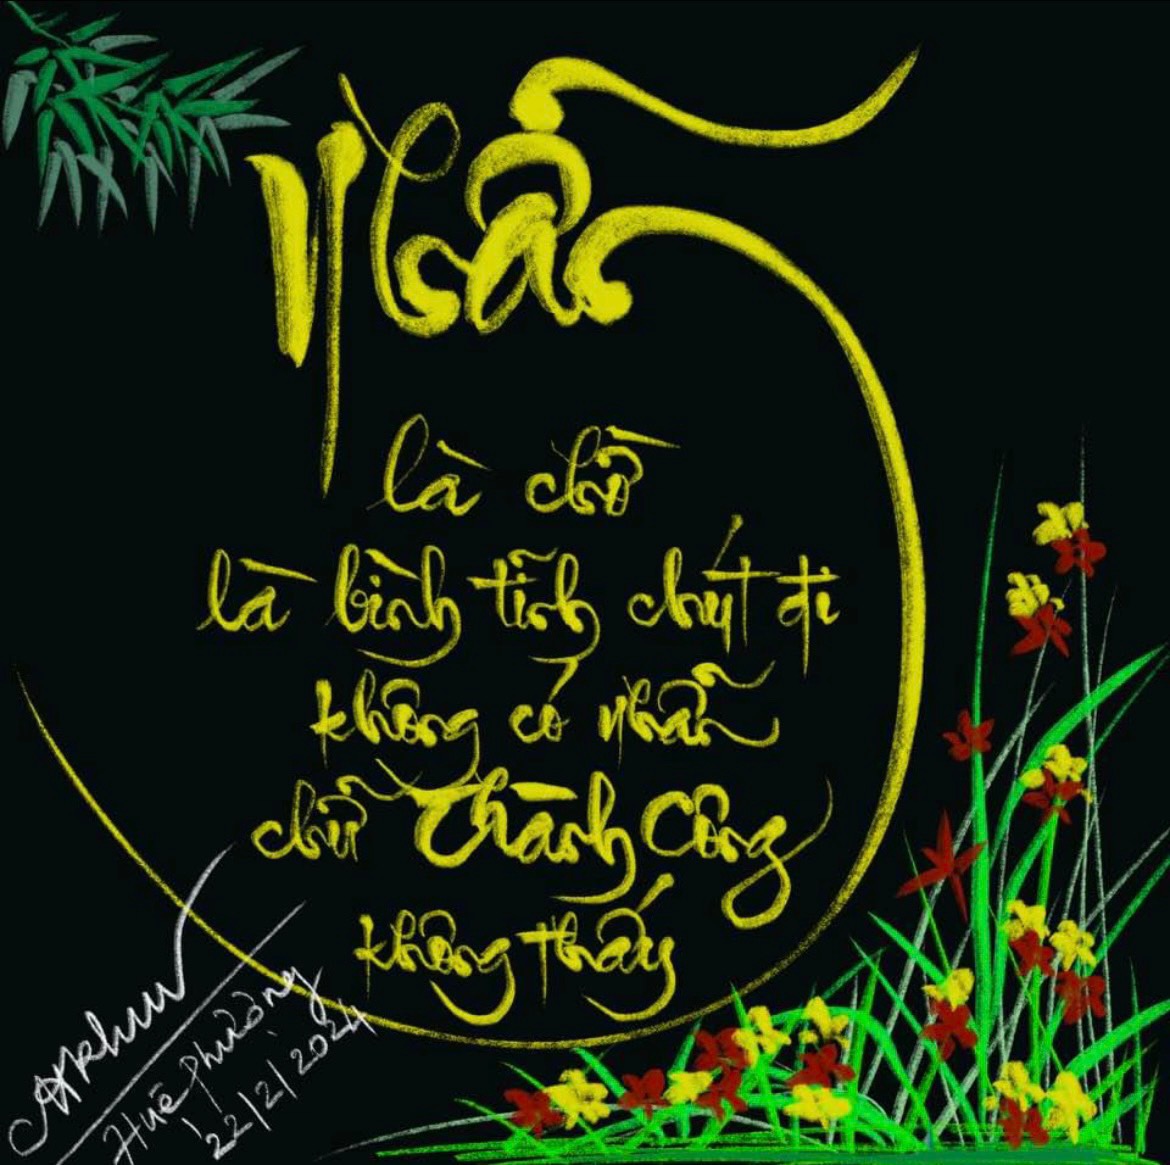 Nhẫn
là chờ
là bình tĩnh chút đi
không có nhẫn
chữ Thành Công
không thấy
Huê Phường
22/2/2024